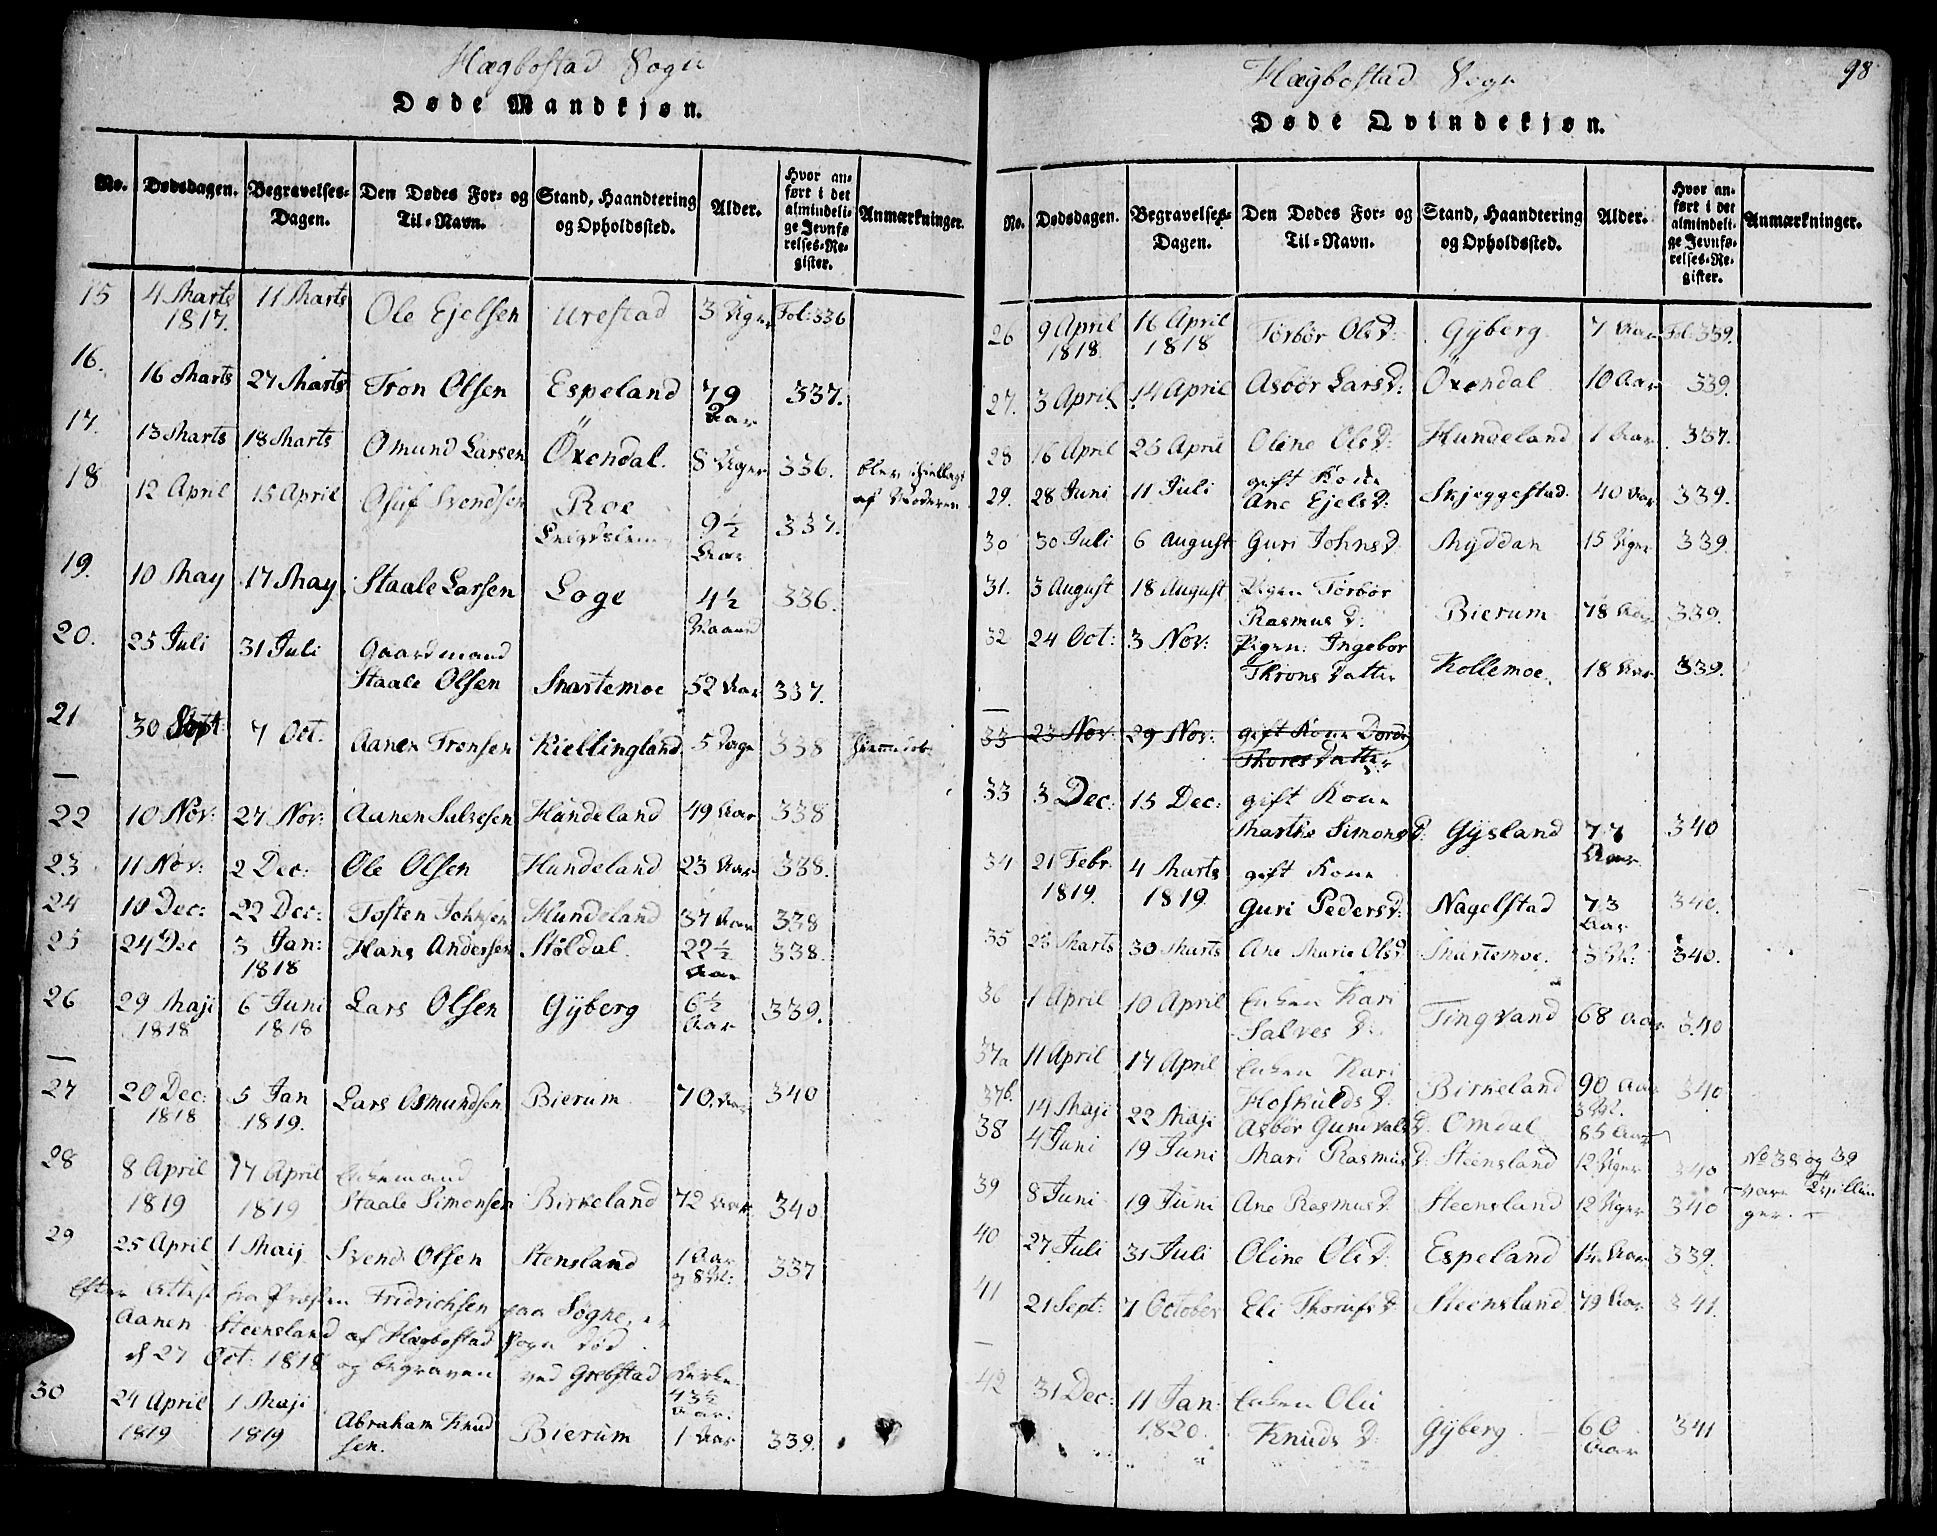 Hægbostad Sogn
Døde Mandkjøn.
No. Dødsdagen. Begravelses-Dagen. Den Dødes For- og Til-Navn. Stand, Haandtering og Opholdssted. Alder. Hvor anført i det almindelige Jevnførelses-Register. Anmærkninger.
15 4 Marts 1817. 11 Marts Ole Ejelsen Urestad 3 Uger Fol: 336
16. 16 Marts 27 Marts Tron Olsen Espeland 79 Aar 337.
17. 13 Marts 18 Marts Omund Larsen Öxendal. 8 Uger 336. blev ihiellagt af Moderen
18 12 April 15 April Osuf Svendsen Roe 9½ Aar 337.
19. 10 May 17 May Staale Larsen Loge 4½ Maaned 336.
20. 25 Juli 31 Juli Gaardmand
Staale Olsen Snartemoe 52 Aar 337.
21 30 Sept: 7 Oct: Aanen Tronsen Kiellingland 5 Dage 338 Hjemmedøb:
22 10 Nov: 27 Nov: Aanen Salvesen Hundeland 49 Aar 338
23 11 Nov: 2 Dec: Ole Olsen Hundeland 23 Aar 338.
24 10 Dec: 22 Dec: Tosten Johnsen Hundeland 37 Aar 338
25 24 Dec 3 Jan: 1818 Hans Andersen Støldal. 22½ Aar 338.
26 29 Maji 1818 6 Juni 1818 Lars Olsen Gÿberg 6½ Aar 339.
27 20 Dec: 1818 5 Jan 1819. Lars Osmundsen Bierum 70. Aar 340
28 8 April 1819 17 April 1819 Enkemand
Staale Simonsen Birkeland 72 Aar 340
29 25 April 1 Maij Svend Olsen Stensland 1 Aar og 8 M: 337
Efter Attest fra Præsten Fridrichsen paa Søgne, er
Aanen Steensland af Hægbostad Sogn død
d 27 Oct: 1818 og begraven ved Grebstad Kirke. 43½ Aar.
30 24 April 1819 1 Maji 1819 Abraham Knudsen. Bierum 1 Aar 339.
Hægbostad Sogn
98
Døde Qvindekjøn.
No. Dødsdagen. Begravelses-Dagen. Den Dødes For- og Til-Navn. Stand, Haandtering og Opholdssted. Alder. Hvor anført i det almindelige Jevnførelses-Register. Anmærkninger.
26 9 April 1818 16 April 1818 Torbør Olsd: Gÿberg 7 Aar Fol: 339.
27. 3 April 14 April Asbör Larsd: Öxendal 10 Aar 339.
28 16 April 25 April Oline Olsd: Hundeland 1 Aar 337.
29. 28 Juni 11 Juli gift Kone
Ane Ejelsd: Skjeggestad 40 Aar 339.
30 30 Juli 6 August Guri Johnsd. Myddan 15 Uger 339.
31. 3 August 18 August Pigen Torbör
Rasmus D: Bierum 78 Aar 339.
32 24 Oct: 3 Nov: Pigen: Ingebor
Throns Datter Kollemoe. 18 Aar 339.
33 23 Nov 29 Nov: gift Kone Dorde
Thores Datter
33 3 Dec: 15 Dec: gift Kone
Marthe Simonsd: Gÿsland 77 Aar 340
34 21 Febr. 1819. 4 Marts 1819 gift Kone
Guri Pedersd: Nagelstad 73 Aar 340.
35 23 Marts 30 Marts Ane Marie Olsd Snartemoe. 3 M: 340.
36 1 April 10 April Enken Kari
Salves D: Tingvand 68 Aar 340
37a 11 April 17 April Enken Kari
Hoskulds D: Birkeland 90 Aar 340
37b. 14 Maji 22 Maji Asbör Gunvalsd: Omdal 85 Aar
38 4 Juni 19 Juni Mari Rasmusd: Steensland 12 Uger 340 No 38 og 39
39 8 Juni 19 Juni Ane Rasmusd. Steensland 12 Uger 340 vare Tvillinger.
40 27 Juli 31 Juli Oline Olsd: Espeland 14 Aar 339.
41 21 Sept: 7 October Eli Thorufsd Steensland 79 Aar 341.
42 31 Dec: 11 Jan: 1820. Enken Oli
Knuds D: Gÿberg 60 Aar 341